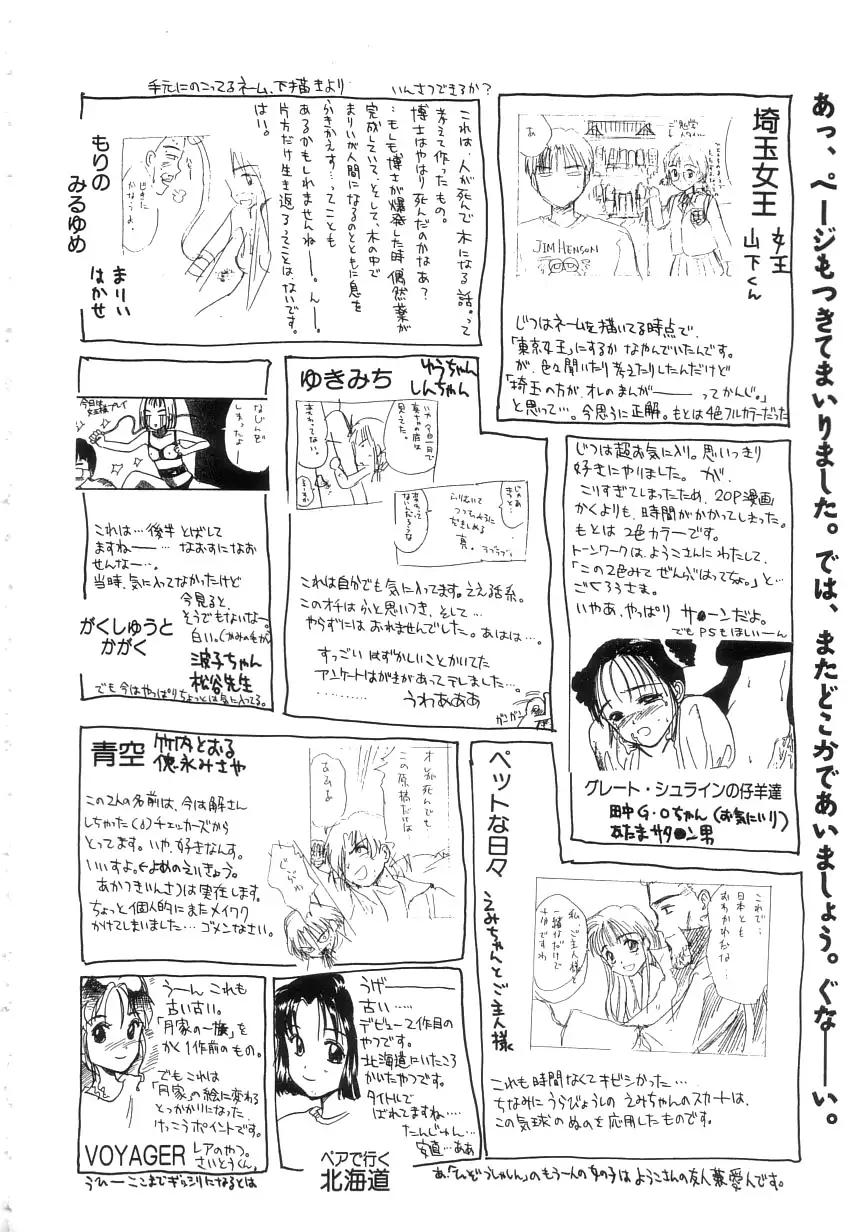 あっ、ページもつきてまいりました。では、またどこかであいましょう。ぐなーーい。
手元にのこってるネーム、下描きより
いんさつできるか?
埼玉女王
女王
山下くん
あ
JIM HENSON
じつはネームを描いてる時点で、
「東京女王」にするか なやんでいたんです。
が、色々聞いたり考えたりしたんだけど
「埼玉の方が、オレのまんが――ってかんじ。」
と思って…。今思うに正解。もとは4色フルカラーだった
もりの
みるゆめ
まりい
はかせ
これは、人が死んで木になる話。って
考えて作ったもの。
博士はやはり死んだのかなあ?
…もしも博士が爆発した時 偶然薬が
完成していて、そして、木の中で
まりいが人間になるのとともに息を
ふきかえす…ってことも
あるかもしれませんねー。んー。
片方だけ生き返るってことは、ないです。
はい。
ゆきみち
ゆうちゃん
しんちゃん
変わってない。
じゃあ
きっと…
真。
ラブラブ
これは自分でも気に入ってます。ええ話系。
このオチは ふと思いつき、そして…
やらずには おれませんでした。あはは…。
すっごい はずかしいことかいてた
アンケートはがきがあってテレました…。
…………
うわあああ
ガンガン
今日は女王様プレイ
なじんど
しまったよー
これは…後半 とばして
ますねー… なおすになお
せんなー…。
当時、気に入ってなかったけど
今見ると、
そうでもないなー。
白い。(かみの毛が)
がくしゅうと
かがく
波子ちゃん
松谷先生
でも今はやっぱりちょっとは気に入ってる。
じつは超お気に入り。思いっきり
好きにやりました。が、
こりすぎてしまったため、20P漫画
かくよりも、時間がかかってしまった。
もとは2色カラーです。
トーンワークは、ようこさんにわたして、
「この2色みて ぜんぶはってちょ。」と…
ごくろうさま。
いやあ、やっぱり サ●ーンだよ。
でもPSもほしいーん
グレート・シュラインの仔羊達
田中G・Oちゃん(お気にいり)
あたまサタ●ン男
青空
竹内とおる
徳永みさや
この2人の名前は、今は解さん
しちゃった(δ)チェッカーズから
とってます。いや、好きなんす。
いいすよ。(←よめのえいきょう。
あかつきいんさつは実在します。
ちょっと個人的にまたメイワク
かけてしまいました… ゴメンなさい。
オレが死んでも
この原稿だけは…
ペットな日々
えみちゃんとご主人様
これで…
日本とも
おわかれだな…
私、ご主人様と
一緒なだけで
幸せですわ
これも時間なくてキビシかった…
ちなみにうらびょうしのえみちゃんのスカートは、
この気球のぬのを応用したものです。
うーん これも
古い古い。
「月家の一族」を
かく1作前のもの。
でもこれは
「月家」の絵に変わる
とっかかりになった、
けっこうポイントです。
VOYAGER
レアのやつ。
さいとうくん
うげ――
古い……
デビュー2作目の
やつです。
北海道にいたころ
かいたやつです。
タイトルで
ばれてますね…
たんじゅん…
安直…ああ
ペアで行く
北海道
うひーーここまでぎっシリになるとは
あ、「ひんぞうしゃしん」のもう一人の女の子はようこさんの友人兼愛人です。